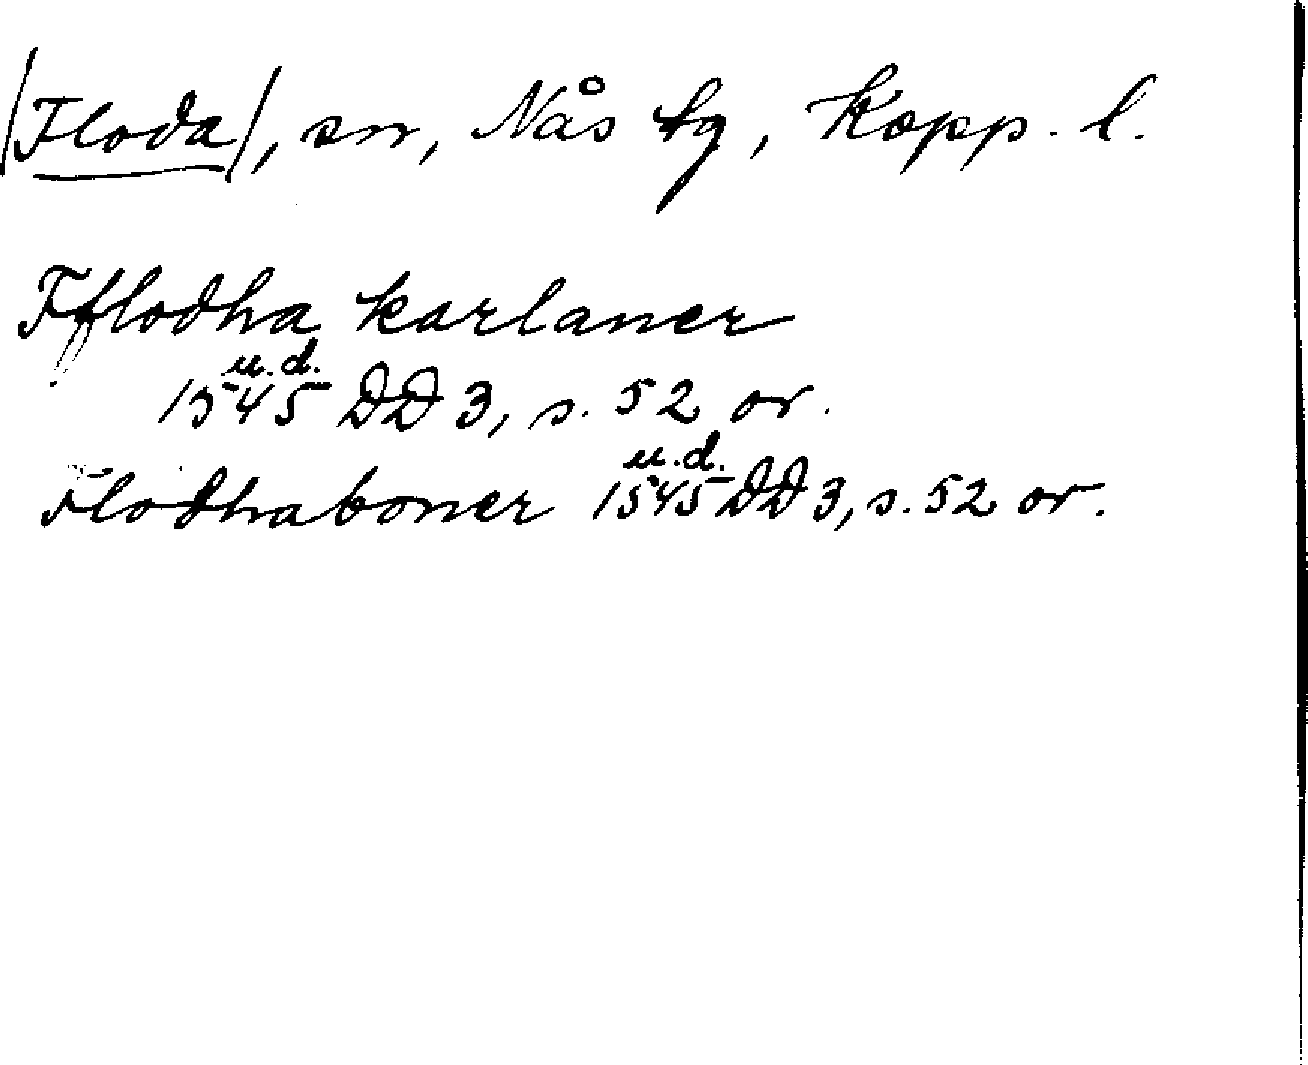 /Floda/, sn, Nås tg, Kopp. l.
Fflodha karlaner
u.d.
1545 DD 3, s. 52 or.
u.d.
Flodhaboner 1545 DD 3, s. 52 or.